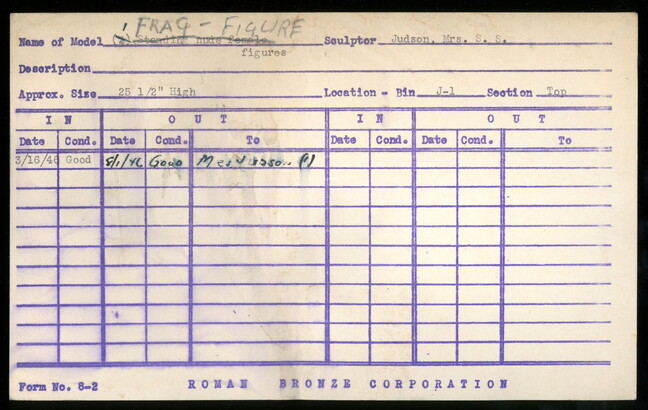 FRAG - FIGURE
Name of Model (2) Standing nude female Sculptor Judson, Mrs. S. S.
figures
Description
Approx. Size 25 1/2" High Location - Bin J-1 Section Top
I N O U T I N O U T
Date Cond. Date Cond. To Date Cond. Date Cond. To
3/16/46 Good 8/1/46 Good
Form No. 8-2 ROMAN BRONZE CORPORATION